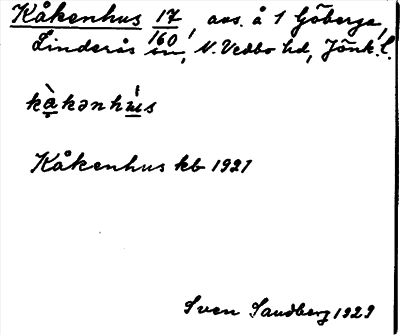 Kåkenhus 17, avs. å 1 Göberga,
Linderås 160 sn, N. Vedbo hd, Jönk. l.
kàkənhús
Kåkenhus kb 1921
Sven Sandberg 1929